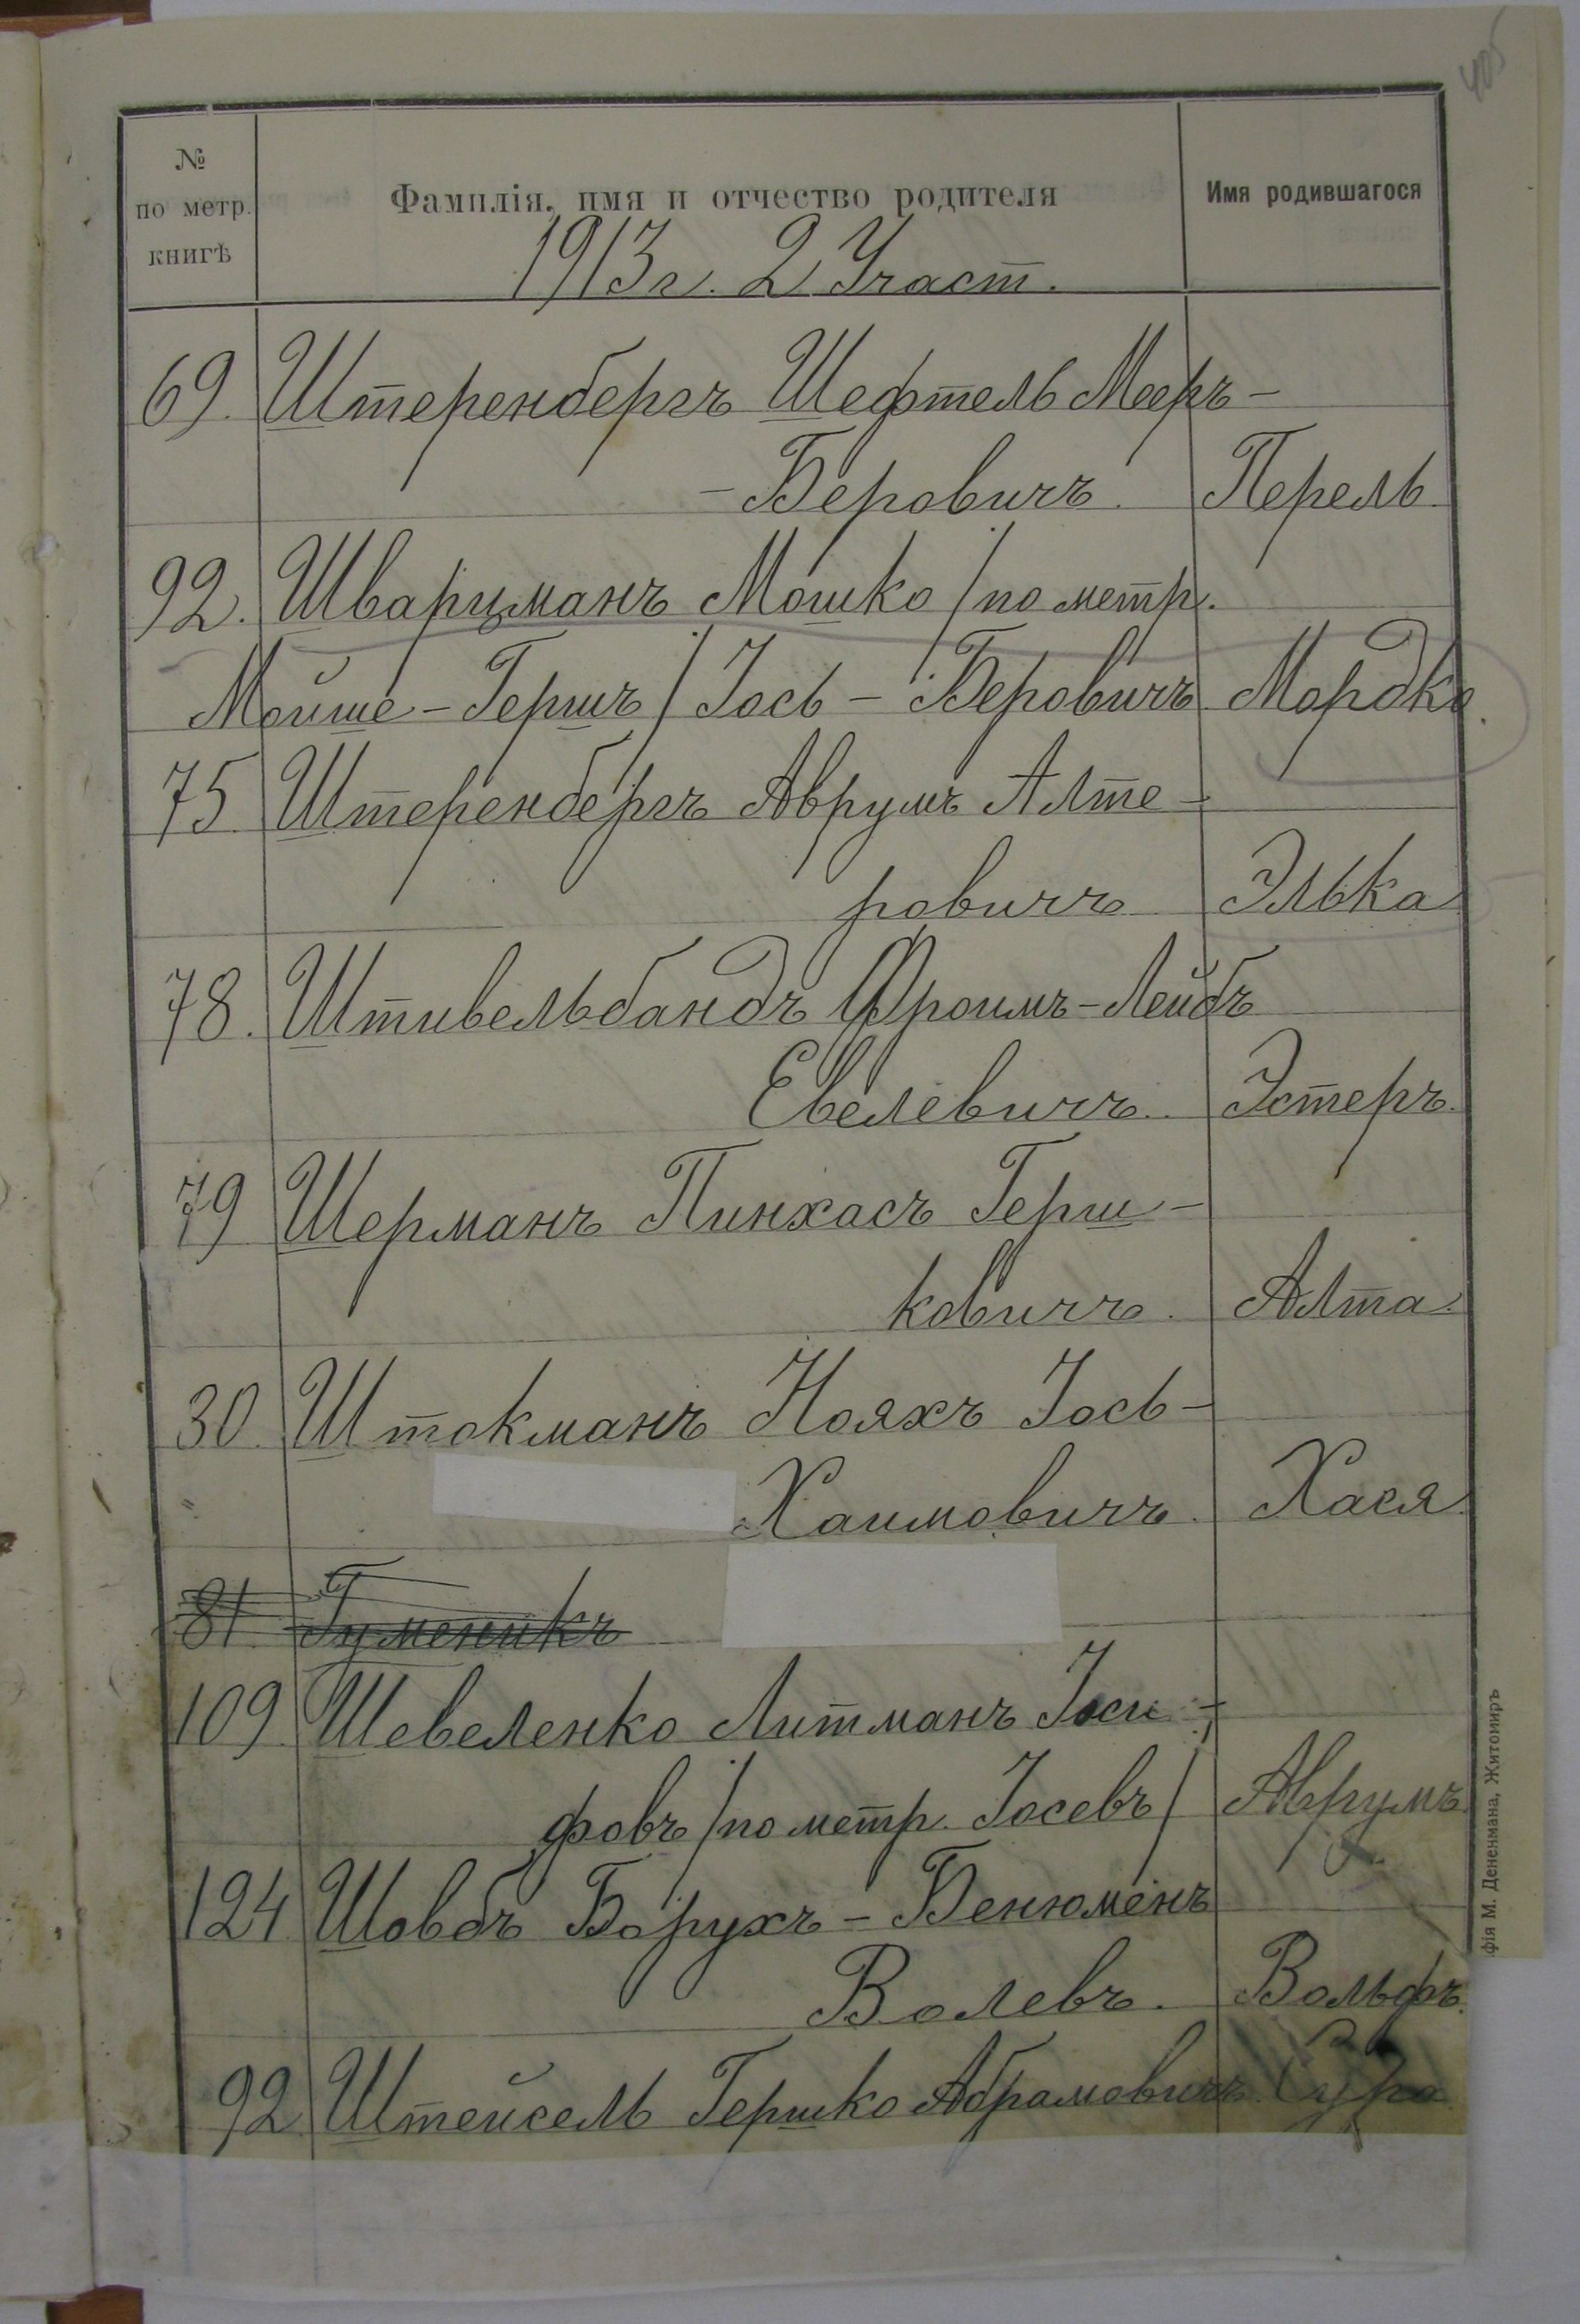 405
№ по метр. книгѣ
Фамилія, имя и отчество родителя
Имя родившагося
1913 г. 2 Участ.
69. Штеренбергъ Шефтель Мееръ-
-Беровичъ. Перель
92. Шварцманъ Мошко /по метр.
Мойше-Гершъ/ Іось-Беровичъ Мордко.
75 Штеренбергъ Аврумъ Алте-
ровичъ Элька
78. Штивельбандъ Фроимъ-Лейбъ
Евелевичъ. Эстеръ.
79 Шерманъ Пинхасъ Герш-
ковичъ. Алта.
30. Штокманъ Нояхъ Іось-
Хаимовичъ. Хася.
81 Гуменикъ
109 Шевеленко Литманъ Іоси-
фовъ /по метр. Іосевъ/ Аврумъ
124 Шовбъ Борухъ-Бенюменъ
Волевъ. Вольфъ.
92 Штейсель Гершко Абрамовичъ Сура
фія М. Дененмана, Житомиръ